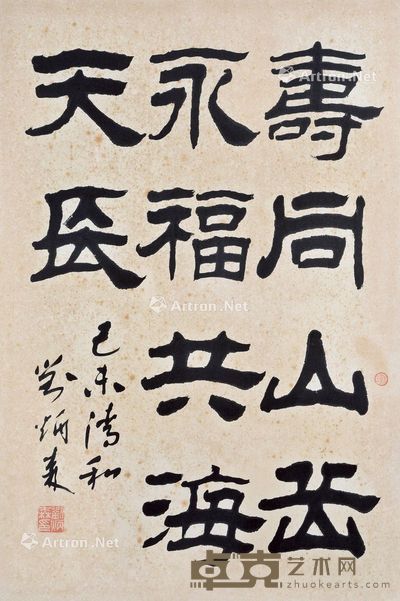 壽同山岳
永福共海
天長
己未清和
劉炳森
Artron.Net
Artron.Net
Artron.Net
Artron.Net
卓克艺术网
zhuokearts.com